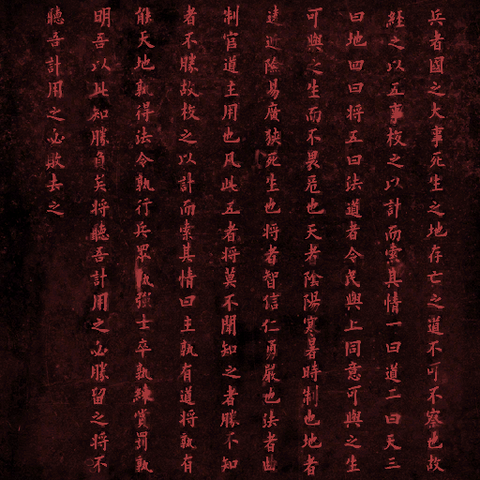 兵者國之大事死生之地存亡之道不可不察也故
經之以五事校之以計而索其情一曰道二曰天三
曰地四曰將五曰法道者令民與上同意可與之生
可與之生而不畏危也天者陰陽寒暑時制也地者
遠近險易廣狹死生也將者智信仁勇嚴也法者曲
制官道主用也凡此五者將莫不聞知之者勝不知
者不勝故校之以計而索其情曰主孰有道將孰有
能天地孰得法令孰行兵眾孰強士卒孰練賞罰孰
明吾以此知勝負矣將聽吾計用之必勝留之將不
聽吾計用之必敗去之